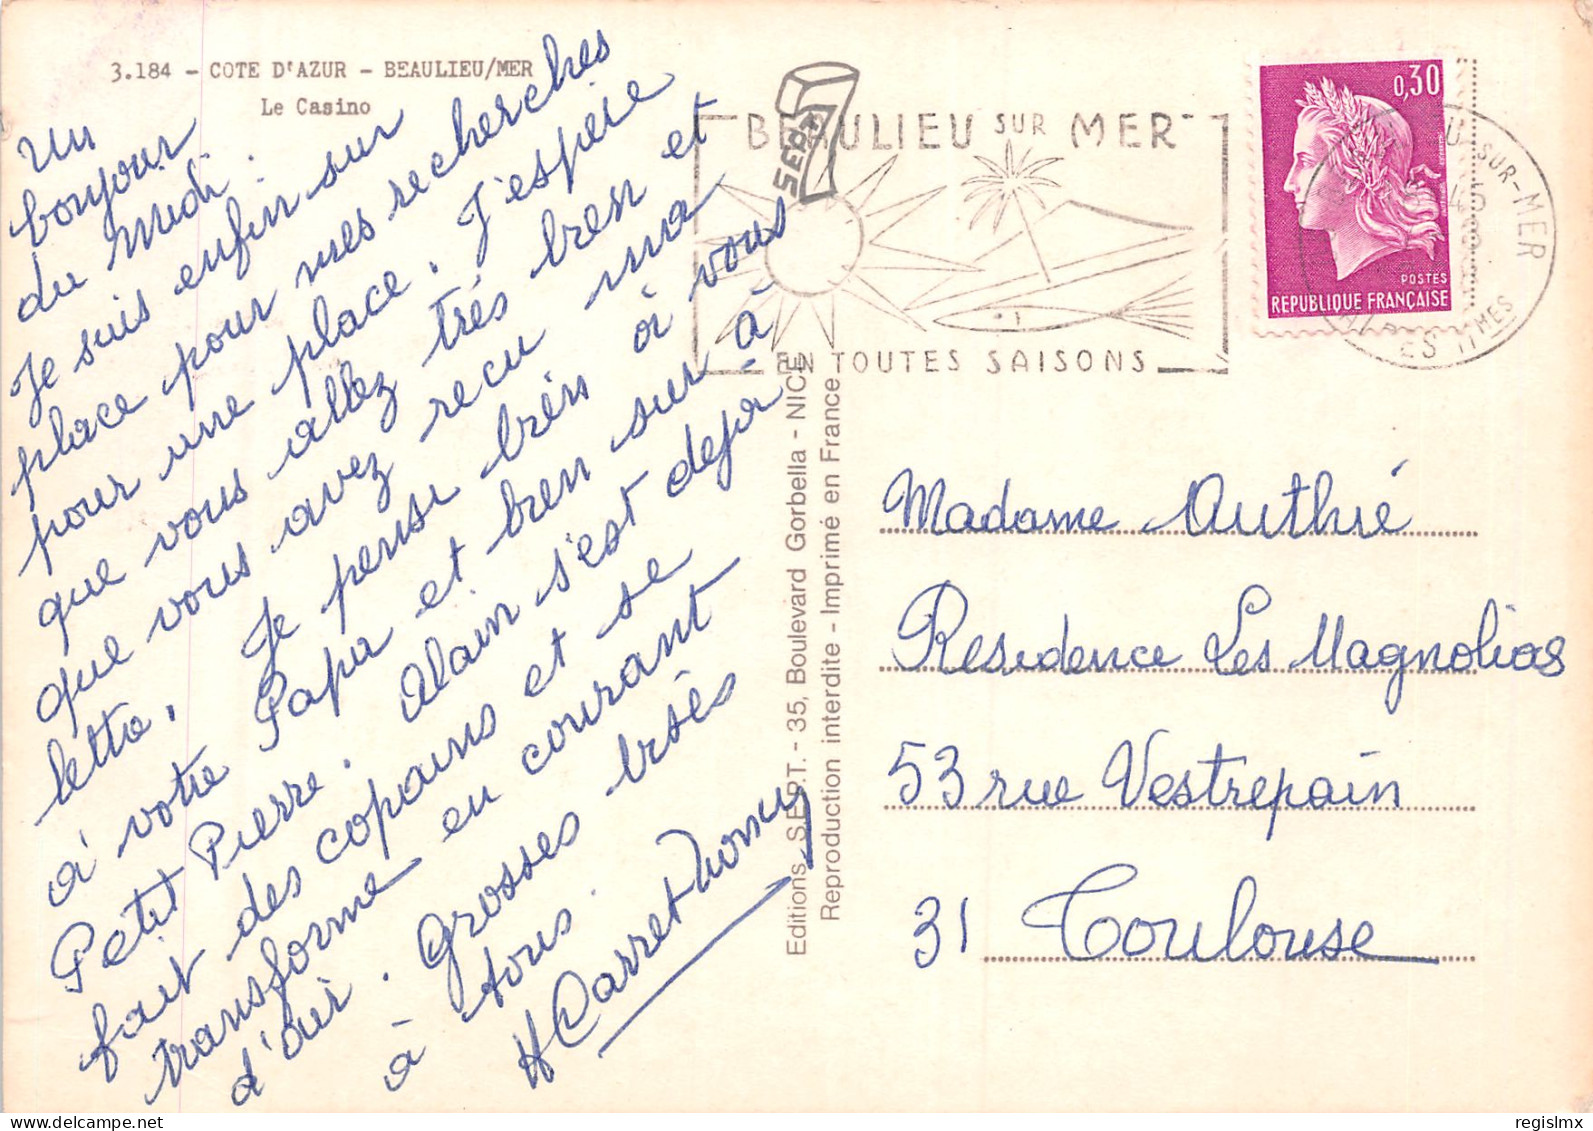 3.184 - COTE D'AZUR - BEAULIEU/MER
Le Casino
Un
bonjour
du Midi.
Je suis enfin sur
place pour mes recherches
pour une place. J'espère
que vous allez très bien et
que vous avez recu ma
lettre. Je pense bien à vous
à votre Papa et bien sur à
Petit Pierre. Alain s'est deja
fait des copains et se
transforme en courant
d'air. Grosses bises
à tous.
Carret
SEPT
BEAULIEU SUR MER
EN TOUTES SAISONS
0,30
POSTES
REPUBLIQUE FRANÇAISE
SUR-MER
MES
Editions SEPT. - 35, Boulevard Gorbella - NICE
Reproduction interdite - Imprimé en France
Madame Authié
Residence Les Magnolias
53 rue Vestrepain
31 Toulouse
regislmx
delcampe.net